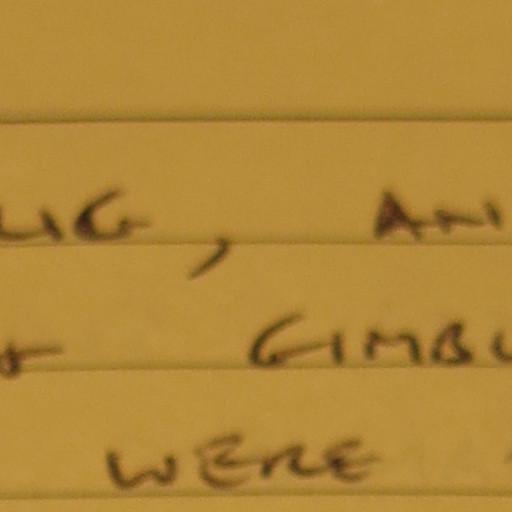 LIG, AN
GIMBL
WERE